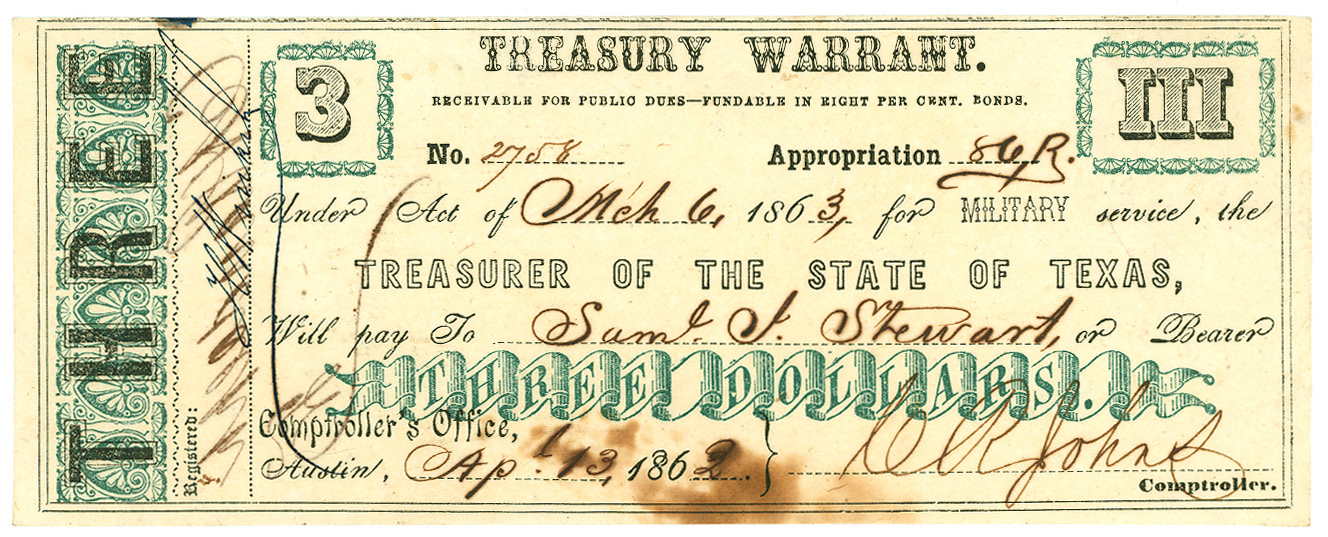 THREE
Registered:
3
TREASURY WARRANT.
III
RECEIVABLE FOR PUBLIC DUES—FUNDABLE IN EIGHT PER CENT. BONDS.
No. 2758 Appropriation 86, R.
Under Act of Mch 6, 1863, for MILITARY service, the
TREASURER OF THE STATE OF TEXAS,
Will pay To Saml. J. Stewart, or Bearer
THREE DOLLARS.
Comptroller's Office,
Austin, Apl 13, 1862. C R Johns
Comptroller.